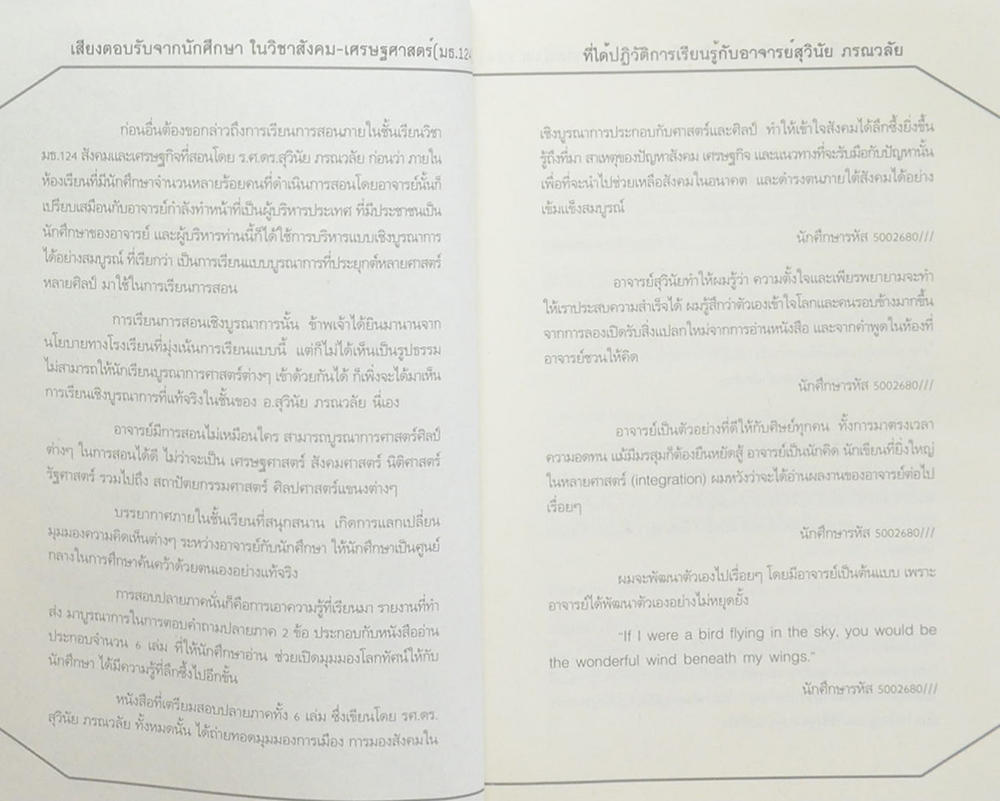 เสียงตอบรับจากนักศึกษา ในวิชาสังคม-เศรษฐศาสตร์(มธ.124
ก่อนอื่นต้องขอกล่าวถึงการเรียนการสอนภายในชั้นเรียนวิชา
มธ.124 สังคมและเศรษฐกิจที่สอนโดย ร.ศ.ดร.สุวินัย ภรณวลัย ก่อนว่า ภายใน
ห้องเรียนที่มีนักศึกษาจำนวนหลายร้อยคนที่ดำเนินการสอนโดยอาจารย์นั้นก็
เปรียบเสมือนกับอาจารย์กำลังทำหน้าที่เป็นผู้บริหารประเทศ ที่มีประชาชนเป็น
นักศึกษาของอาจารย์ และผู้บริหารท่านนี้ก็ได้ใช้การบริหารแบบเชิงบูรณาการ
ได้อย่างสมบูรณ์ ที่เรียกว่า เป็นการเรียนแบบบูรณาการที่ประยุกต์หลายศาสตร์
หลายศิลป์ มาใช้ในการเรียนการสอน
การเรียนการสอนเชิงบูรณาการนั้น ข้าพเจ้าได้ยินมานานจาก
นโยบายทางโรงเรียนที่มุ่งเน้นการเรียนแบบนี้ แต่ก็ไม่ได้เห็นเป็นรูปธรรม
ไม่สามารถให้นักเรียนบูรณาการศาสตร์ต่างๆ เข้าด้วยกันได้ ก็เพิ่งจะได้มาเห็น
การเรียนเชิงบูรณาการที่แท้จริงในชั้นของ อ.สุวินัย ภรณวลัย นี่เอง
อาจารย์มีการสอนไม่เหมือนใคร สามารถบูรณาการศาสตร์ศิลป์
ต่างๆ ในการสอนได้ดี ไม่ว่าจะเป็น เศรษฐศาสตร์ สังคมศาสตร์ นิติศาสตร์
รัฐศาสตร์ รวมไปถึง สถาปัตยกรรมศาสตร์ ศิลปศาสตร์แขนงต่างๆ
บรรยากาศภายในชั้นเรียนที่สนุกสนาน เกิดการแลกเปลี่ยน
มุมมองความคิดเห็นต่างๆ ระหว่างอาจารย์กับนักศึกษา ให้นักศึกษาเป็นศูนย์
กลางในการศึกษาค้นคว้าด้วยตนเองอย่างแท้จริง
การสอบปลายภาคนั่นก็คือการเอาความรู้ที่เรียนมา รายงานที่ทำ
ส่ง มาบูรณาการในการตอบคำถามปลายภาค 2 ข้อ ประกอบกับหนังสืออ่าน
ประกอบจำนวน 6 เล่ม ที่ให้นักศึกษาอ่าน ช่วยเปิดมุมมองโลกทัศน์ให้กับ
นักศึกษา ได้มีความรู้ที่ลึกซึ้งไปอีกขั้น
หนังสือที่เตรียมสอบปลายภาคทั้ง 6 เล่ม ซึ่งเขียนโดย รศ.ดร.
สุวินัย ภรณวลัย ทั้งหมดนั้น ได้ถ่ายทอดมุมมองการเมือง การมองสังคมใน
ที่ได้ปฏิวัติการเรียนรู้กับอาจารย์สุวินัย ภรณวลัย
เชิงบูรณาการประกอบกับศาสตร์และศิลป์ ทำให้เข้าใจสังคมได้ลึกซึ้งยิ่งขึ้น
รู้ถึงที่มา สาเหตุของปัญหาสังคม เศรษฐกิจ และแนวทางที่จะรับมือกับปัญหานั้น
เพื่อที่จะนำไปช่วยเหลือสังคมในอนาคต และดำรงตนภายใต้สังคมได้อย่าง
เข้มแข็งสมบูรณ์
นักศึกษารหัส 5002680///
อาจารย์สุวินัยทำให้ผมรู้ว่า ความตั้งใจและเพียรพยายามจะทำ
ให้เราประสบความสำเร็จได้ ผมรู้สึกว่าตัวเองเข้าใจโลกและคนรอบข้างมากขึ้น
จากการลองเปิดรับสิ่งแปลกใหม่จากการอ่านหนังสือ และจากคำพูดในห้องที่
อาจารย์ชวนให้คิด
นักศึกษารหัส 5002680///
อาจารย์เป็นตัวอย่างที่ดีให้กับศิษย์ทุกคน ทั้งการมาตรงเวลา
ความอดทน แม้มีมรสุมก็ต้องยืนหยัดสู้ อาจารย์เป็นนักคิด นักเขียนที่ยิ่งใหญ่
ในหลายศาสตร์ (integration) ผมหวังว่าจะได้อ่านผลงานของอาจารย์ต่อไป
เรื่อยๆ
นักศึกษารหัส 5002680///
ผมจะพัฒนาตัวเองไปเรื่อยๆ โดยมีอาจารย์เป็นต้นแบบ เพราะ
อาจารย์ได้พัฒนาตัวเองอย่างไม่หยุดยั้ง
"If I were a bird flying in the sky, you would be
the wonderful wind beneath my wings."
นักศึกษารหัส 5002680///